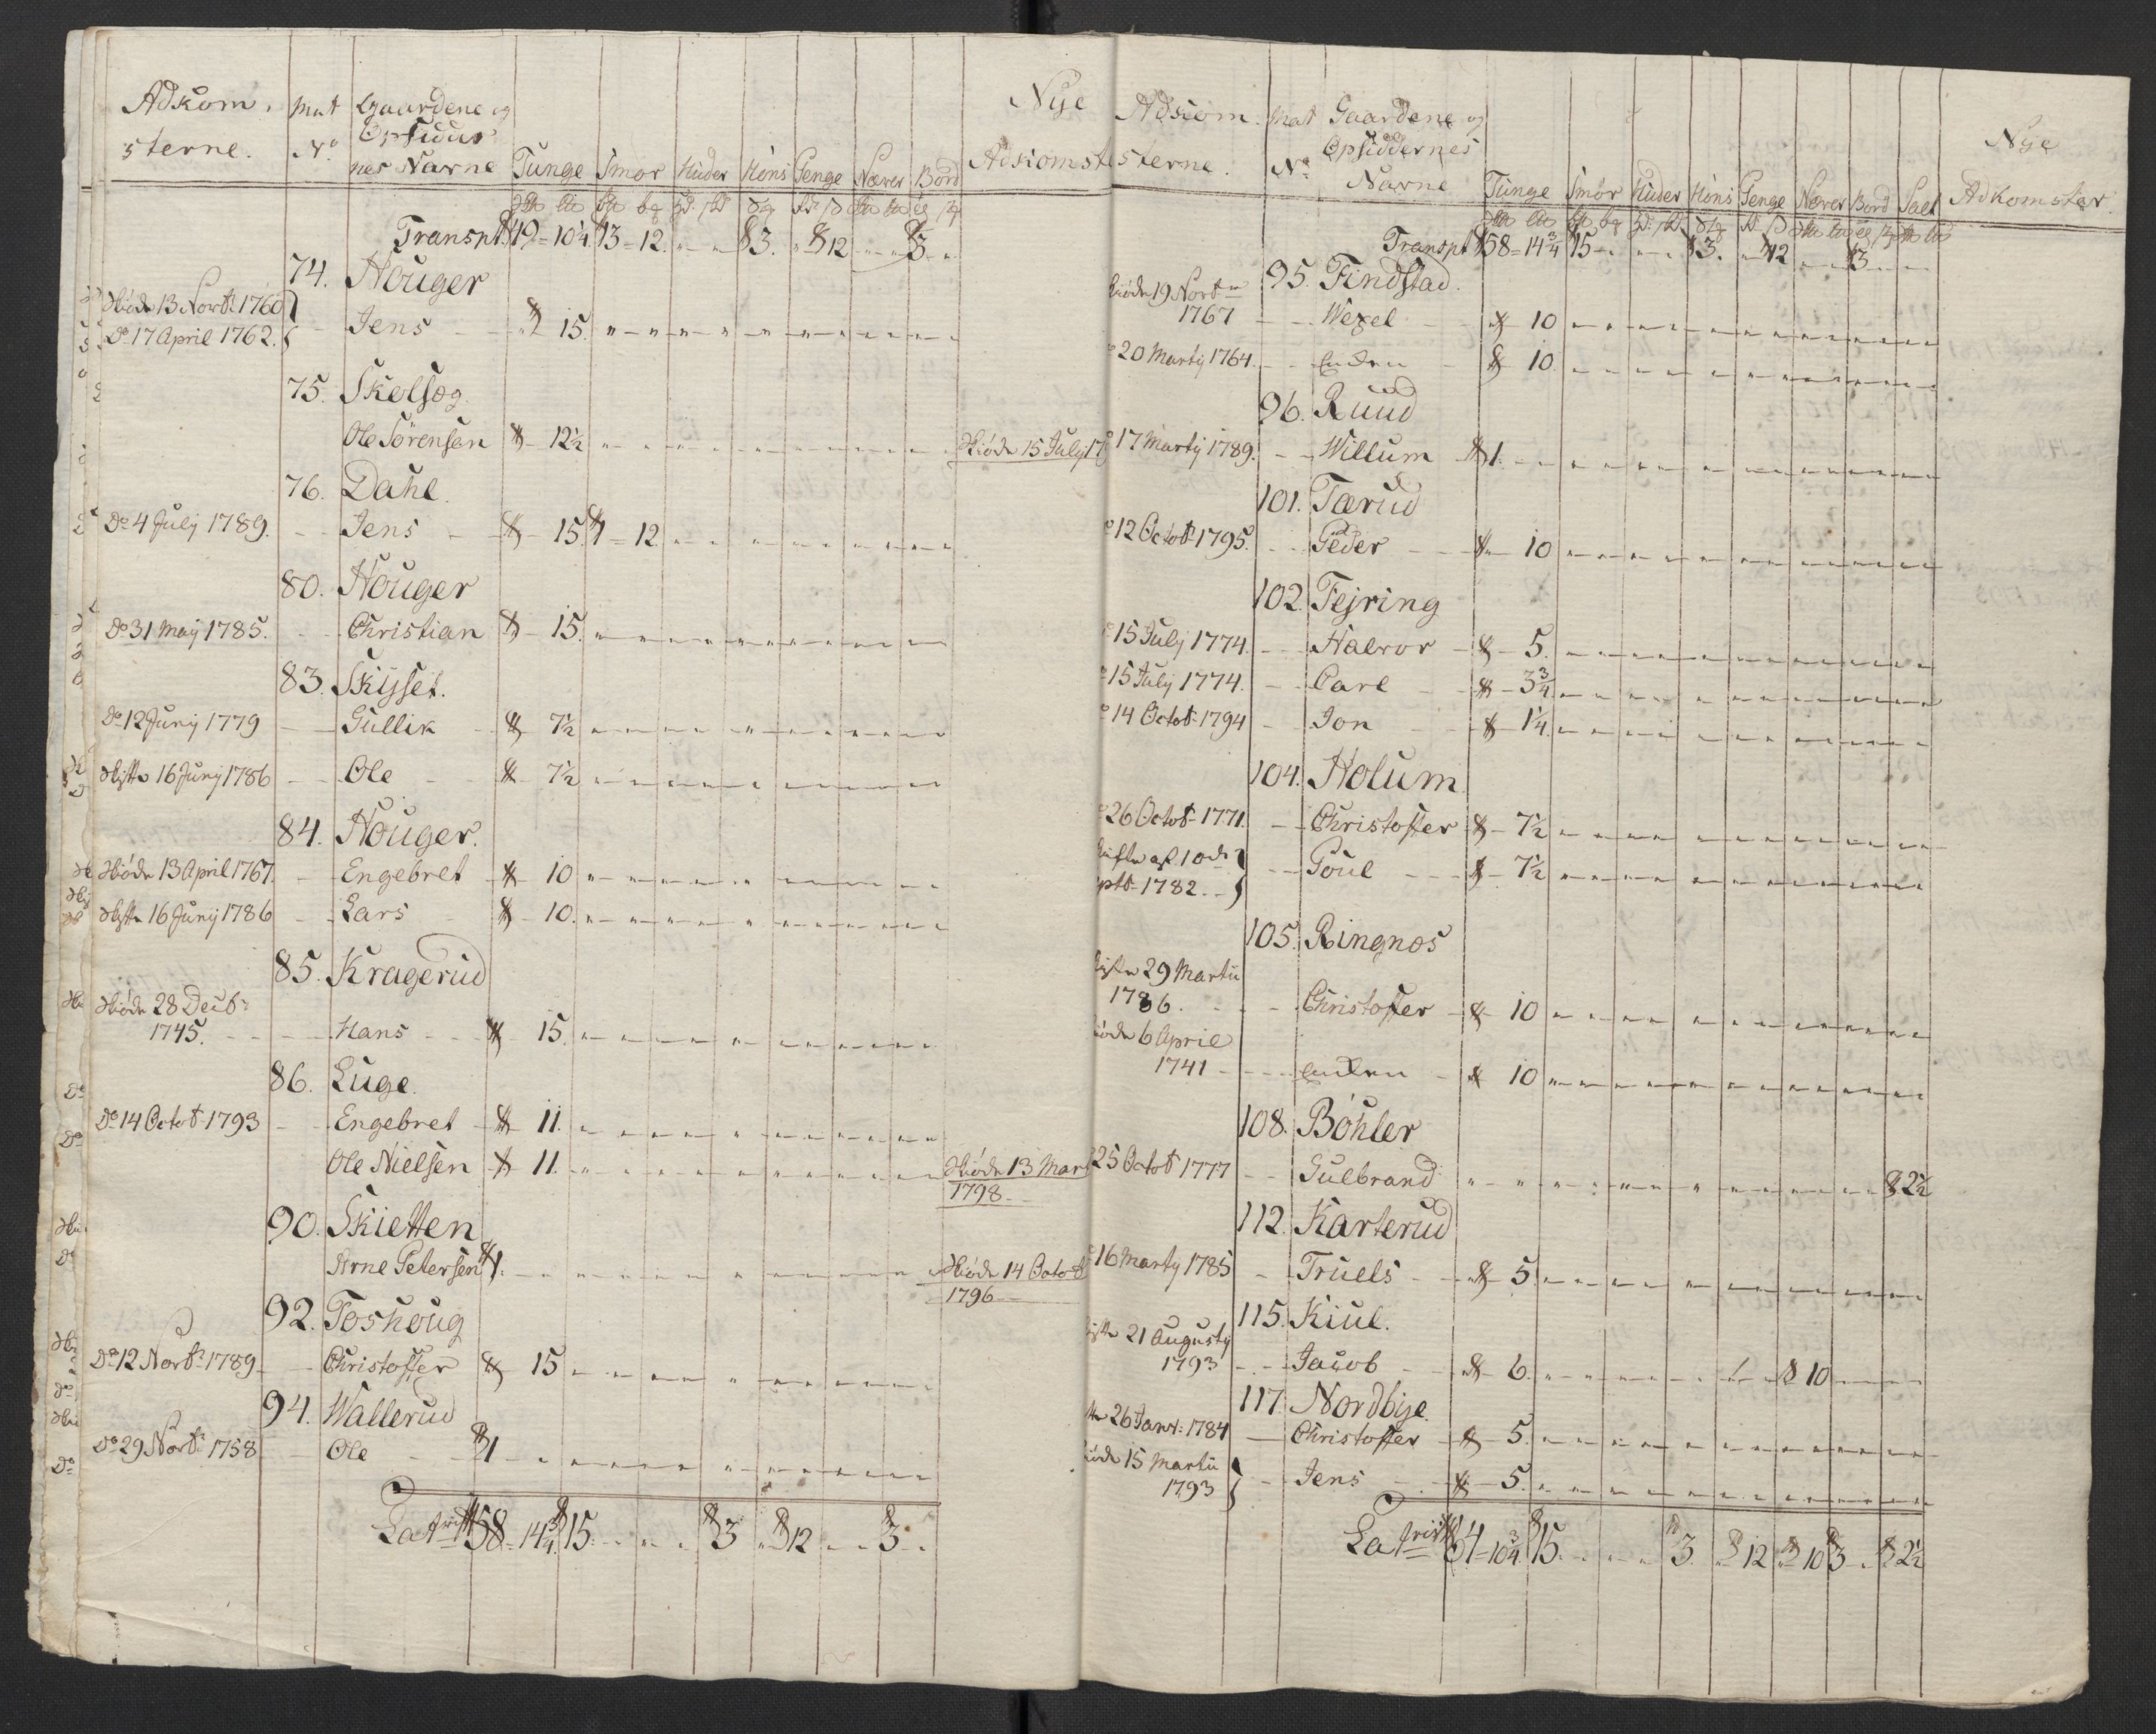 Adkom-
sterne.
Mat
No
Gaardene og
Opsidder
nes Navne
Tunge Smør Huder Höns Penge Næver Bord
Nye
Adkomst
Transpt 19 - 10 1/4 13 - 12 3 12 3
74. Houger
Skiøde 13 Novbr 1760
Do 17 April 1762. Jens 15
75. Skelsøg
Ole Sörensen 12 1/2 Skiøde 15 July 17
76. Dahl.
Do 4 July 1789. Jens 15. 1 - 12
80. Houger
Do 31 Maij 1785. Christian 15.
83. Skijset.
Do 12 Junij 1779 Gullik 7 1/2
Skifte 16 Junij 1786 Ole 7 1/2
84. Houger.
Skiøde 13 April 1767. Engebret 10
Skifte 16 Junij 1786 Lars 10.
85. Kragerud
Skiøde 28 Decbr
1745. Hans 15.
86. Luge.
Do 14 Octob 1793 Engebret 11.
Ole Nielsen 11. Skiøde 13 Mar
1798.
90. Skietten
Arne Petersen 1. Skiøde 14 Octob
1796
92. Toshoug
Do 12 Novbr 1789 Christoffer 15
94. Wallerud
Do 29 Novbr 1758 Ole 1
Latris 58 - 14 3/4 15. 3 12 3
Adkom-
sterne.
Mat
No
Gaardene og
Opsiddernes
Navne
Tunge Smør Huder Höns Penge Næver Bord Salt
Nye
Adkomster.
Transpt 58 - 14 3/4 15 3. 12 3
95. Findstad.
kiøde 19 Novbr
1767 Wexel 10
20 Martij 1764. Enken 10.
96. Ruud
17 Martij 1789. Willum 1.
101. Tærud
12 Octob 1795. Peder 10
102. Fejring
15 July 1774. Halvor 5.
15 July 1774. Carl 3 3/4
14 Octob 1794 Jon 1 1/4
104. Holum
26 Octob 1771. Christoffer 7 1/2
kifte af 10de
ptb 1782. Poul 7 1/2
105. Ringnos
kifte 29 Martii
1786. Christoffer 10
iøde 6 April
1741 Enken 10
108. Böhler
25 Octob 1777 Gulbrand 2 1/2
112. Karterud
16 Marty 1785 Truels 5.
115. Kiul.
ifte 21 Augusty
1793 Jacob 6. 10
117. Nordbye.
te 26 Janv: 1784 Christoffer 5.
iøde 15 Martii
1793 Jens 5.
Latris 64 - 10 3/4 15. 3. 12 10 3 2 1/2